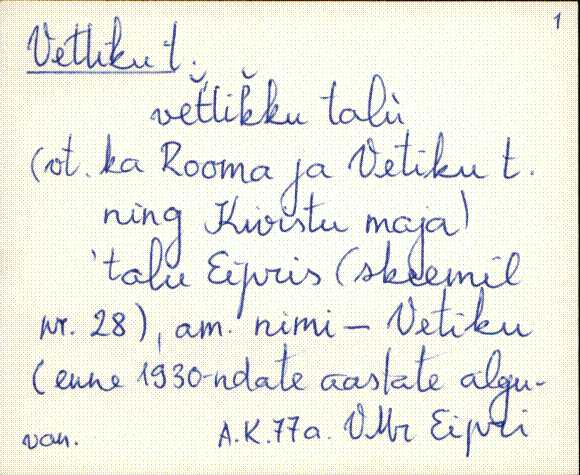 1
Vetliku t.
vet̆lik̆ku talù
(vt. ka Rooma ja Vetiku t.
ning Kivistu maja)
'talu Eipris (skeemil
nr. 28), am. nimi – Vetiku
(enne 1930-ndate aastate algu-
van. A.K.77a. VMr Eipri